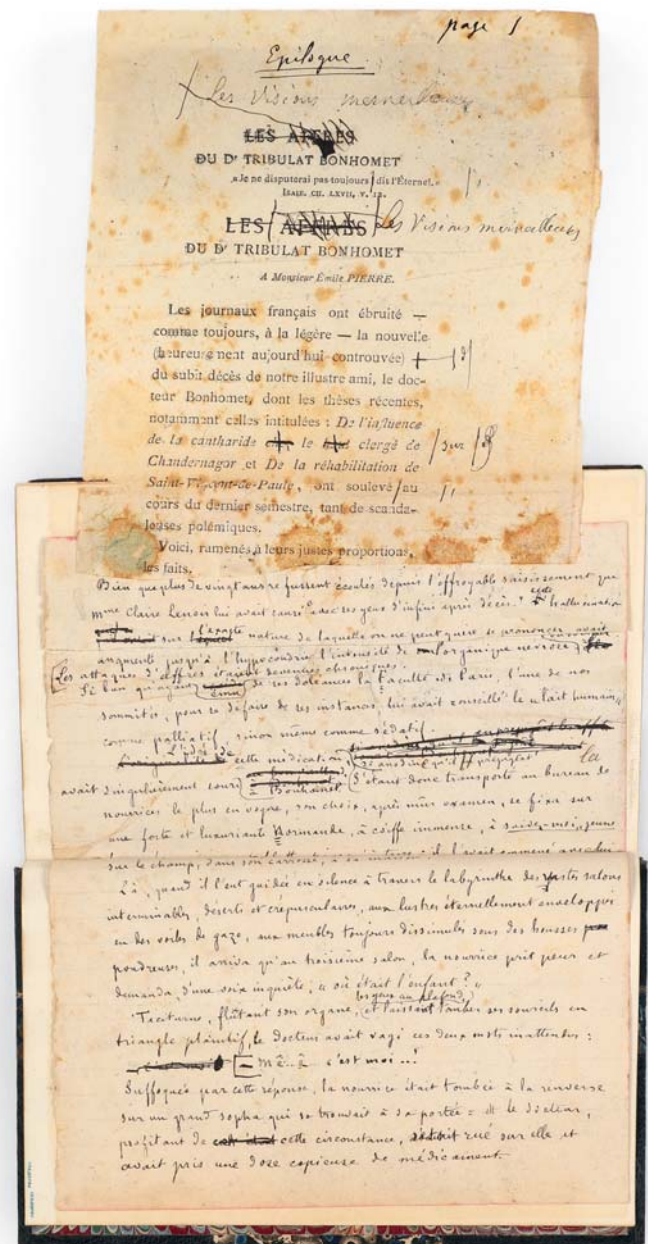 page 1
Epilogue
Les Visions merveilleuses
LES AFFRES
DU Dʳ TRIBULAT BONHOMET
« Je ne disputerai pas toujours, dis l'Éternel. »
ISAIE, CH. LXVII, V. 12.
LES AFFRES Les Visions merveilleuses
DU Dʳ TRIBULAT BONHOMET
A Monsieur Émile PIERRE.
Les journaux français ont ébruité —
comme toujours, à la légère — la nouvelle
(heureusement aujourd'hui controuvée)
du subit décès de notre illustre ami, le doc-
teur Bonhomet, dont les thèses récentes,
notamment celles intitulées : De l'influence
de la cantharide le clergé de sur
Chandernagor et De la réhabilitation de
Saint-Vincent-de-Paule, ont soulevé au
cours du dernier semestre, tant de scanda-
leuses polémiques.
Voici, ramenés à leurs justes proportions,
les faits.
Bien que plus de vingt ans se fussent écoulés depuis l'effroyable saisissement que
Mme Claire Lenoir lui avait causé avec ses yeux d'infini après décès, cette hallucination
sur l'exacte nature de laquelle on ne peut guère se prononcer avait
augmenté, jusqu'à l'hypocondrie l'intensité de l'organique nervosa
Les attaques d'affres étaient devenues chroniques.
Si bien qu'ayant ému de ses doléances la Faculté de Paris, l'une de nos
sommités, pour se défaire de ses instances, lui avait conseillé le « lait humain »
comme palliatif, sinon même comme sédatif.
L'idée de cette médication, si anodine qu'il
avait singulièrement souri S'étant donc transporté au bureau de la
nourrices le plus en vogue, son choix, après mûr examen, se fixa sur
une forte et luxuriante Normande, à coiffe immense, à suivez-moi, jeune
Sur le champ, dans son il l'avait emmené avec lui
Là, quand il l'eut guidée en silence à travers le labyrinthe des vastes salons
interminables, déserts et crépusculaires, aux lustres éternellement enveloppés
en des voiles de gaze, aux meubles toujours dissimulés sous des housses
poudreuses, il arriva qu'au troisième salon, la nourrice prit peur et
demanda, d'une voix inquiète, « où était l'enfant ? »
les yeux au plafond,
Taciturne, flûtant son organe, et laissant tomber ses sourcils en
triangle plaintif, le docteur avait vagi ces deux mots inattendus :
— Mê..ê c'est moi ..!
Suffoquée par cette réponse, la nourrice était tombée à la renverse
sur un grand sopha qui se trouvait à sa portée = et le docteur,
profitant de cette circonstance, s'était rué sur elle et
avait pris une dose copieuse de médicament.